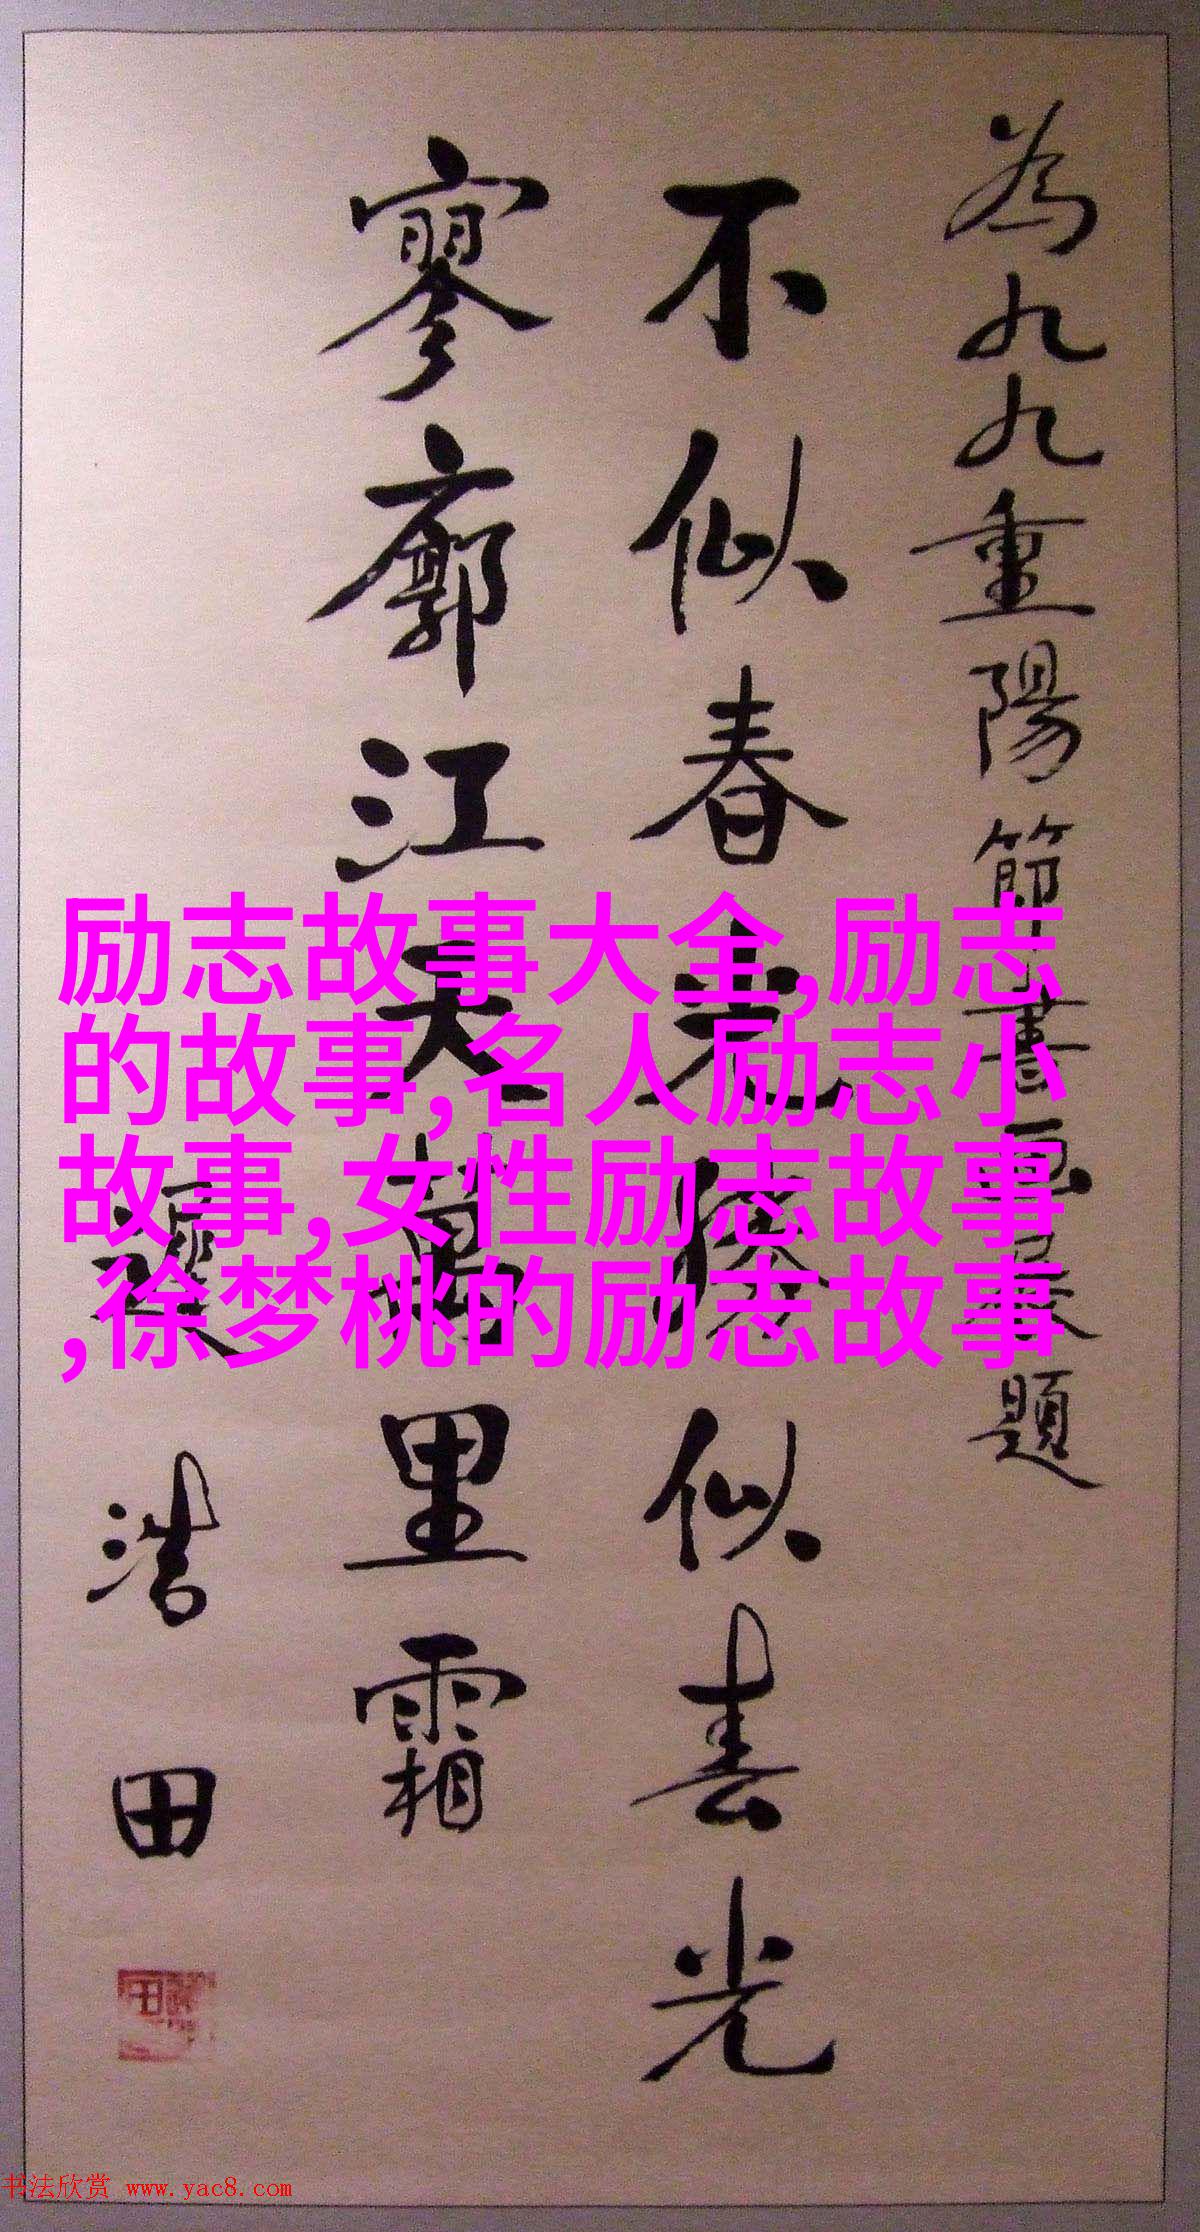 為九九重陽節書画展題
不似春光勝似春光
寥廓江天萬里霜
遲浩田
励志故事大全,励志
的故事,名人励志小
故事,女性励志故事
,徐梦桃的励志故事
书法欣赏 www.yac8.com